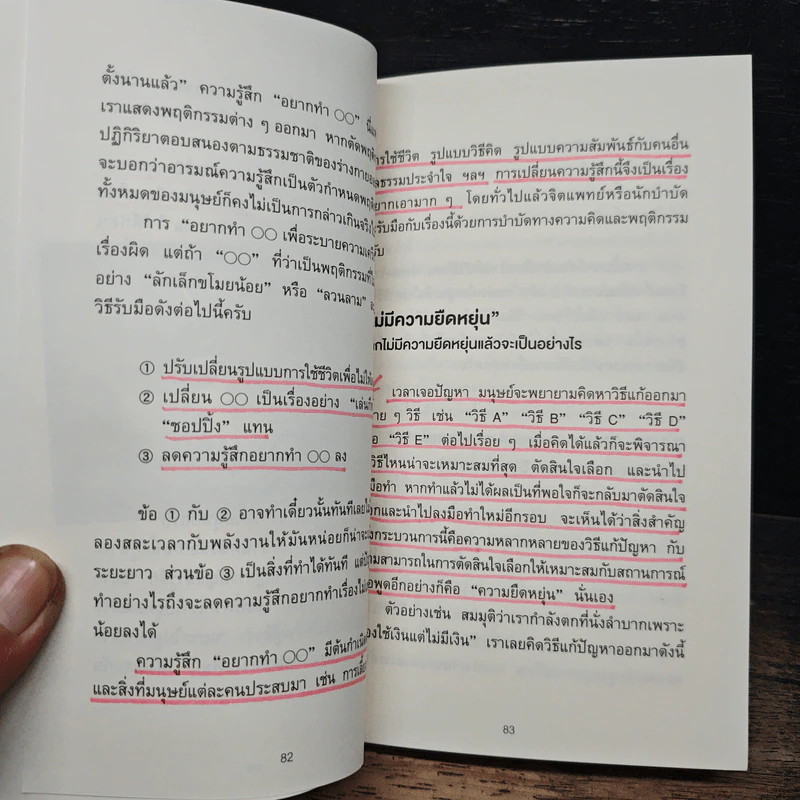 ตั้งนานแล้ว” ความรู้สึก “อยากทำ ○○”
เราแสดงพฤติกรรมต่าง ๆ ออกมา หากตัด
ปฏิกิริยาตอบสนองตามธรรมชาติของร่างกาย
จะบอกว่าอารมณ์ความรู้สึกเป็นตัวกำหนด
ทั้งหมดของมนุษย์ก็คงไม่เป็นการกล่าวเกินจริง
การ “อยากทำ ○○ เพื่อระบาย
เรื่องผิด แต่ถ้า “○○” ที่ว่าเป็นพฤติกรรมที่
อย่าง “ลักเล็กขโมยน้อย” หรือ “ลวนลาม”
วิธีรับมือดังต่อไปนี้ครับ
① ปรับเปลี่ยนรูปแบบการใช้ชีวิตเพื่อไม่ให้
② เปลี่ยน ○○ เป็นเรื่องอย่าง
“ชอปปิ้ง” แทน
③ ลดความรู้สึกอยากทำ ○○ ลง
ข้อ ① กับ ② อาจทำเดี๋ยวนั้นทันทีเลย
ลองสละเวลากับพลังงานให้มันหน่อยก็น่าจะ
ระยะยาว ส่วนข้อ ③ เป็นสิ่งที่ทำได้ทันที แต่
ทำอย่างไรถึงจะลดความรู้สึกอยากทำเรื่อง
น้อยลงได้
ความรู้สึก “อยากทำ ○○” มีต้นกำเนิด
และสิ่งที่มนุษย์แต่ละคนประสบมา เช่น
82
ใช้ชีวิต รูปแบบวิธีคิด รูปแบบความสัมพันธ์กับคนอื่น
ธรรมประจำใจ ฯลฯ การเปลี่ยนความรู้สึกนี้จึงเป็นเรื่อง
ยากเอามาก ๆ โดยทั่วไปแล้วจิตแพทย์หรือนักบำบัด
รับมือกับเรื่องนี้ด้วยการบำบัดทางความคิดและพฤติกรรม
ไม่มีความยืดหยุ่น”
ไม่มีความยืดหยุ่นแล้วจะเป็นอย่างไร
เวลาเจอปัญหา มนุษย์จะพยายามคิดหาวิธีแก้ออกมา
ๆ วิธี เช่น “วิธี A” “วิธี B” “วิธี C” “วิธี D”
“วิธี E” ต่อไปเรื่อย ๆ เมื่อคิดได้แล้วก็จะพิจารณา
วิธีไหนน่าจะเหมาะสมที่สุด ตัดสินใจเลือก และนำไป
มือทำ หากทำแล้วไม่ได้ผลเป็นที่พอใจก็จะกลับมาตัดสินใจ
และนำไปลงมือทำใหม่อีกรอบ จะเห็นได้ว่าสิ่งสำคัญ
กระบวนการนี้คือความหลากหลายของวิธีแก้ปัญหา กับ
สามารถในการตัดสินใจเลือกให้เหมาะสมกับสถานการณ์
พูดอีกอย่างก็คือ “ความยืดหยุ่น” นั่นเอง
ตัวอย่างเช่น สมมุติว่าเรากำลังตกที่นั่งลำบากเพราะ
ใช้เงินแต่ไม่มีเงิน” เราเลยคิดวิธีแก้ปัญหาออกมาดังนี้
83